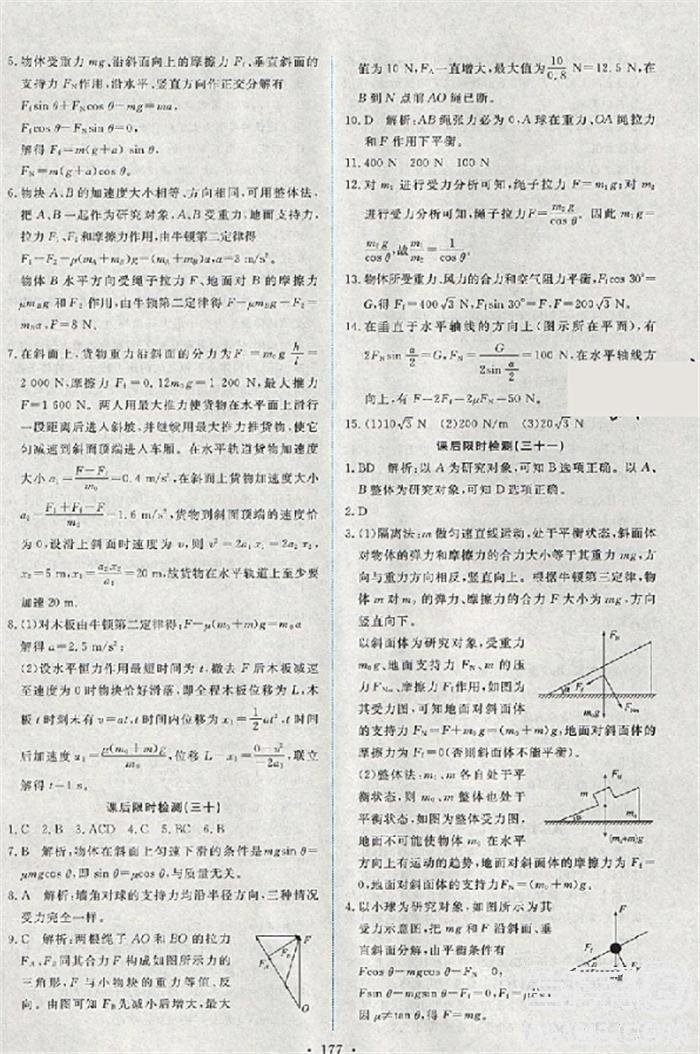 5.物体受重力 mg、沿斜面向上的摩擦力 Ff、垂直斜面的
支持力 FN 作用,沿水平、竖直方向作正交分解有
Ffsin θ+FNcos θ-mg=ma,
Ffcos θ-FNsin θ=0,
解得 Ff=m(g+a) sin θ,
FN=m(g+a)cos θ。
6.物块 A、B 的加速度大小相等、方向相同,可用整体法,
把 A、B 一起作为研究对象,A、B 受重力、地面支持力,
拉力 F1、F2 和摩擦力作用,由牛顿第二定律得
F1-F2-μ(mA+mB)g=(mA+mB)a,a=3 m/s²。
物体 B 水平方向受绳子拉力 F、地面对 B 的摩擦力
μmBg 和 F2 作用,由牛顿第二定律得 F-μmBg-F2=
mBa,F=8 N。
7.在斜面上,货物重力沿斜面的分力为 F=m0g h/l=
2 000 N,摩擦力 Ff=0.12m0g=1 200 N,最大推力
F=1 600 N。两人用最大推力使货物在水平面上滑行
一段距离后进入斜坡,并继续用最大推力推货物,使它
匀减速到斜面顶端进入车厢。在水平轨道货物加速度
大小 a1=(F-Ff)/m0=0.4 m/s²,在斜面上货物加速度大小
a2=(F1+Ff-F)/m0=1.6 m/s²,货物到斜面顶端的速度恰
为 0,设滑上斜面时速度为 v,则 v²=2a1x1=2a2x2,
x2=5 m,x1=a2x2/a1=20 m,故货物在水平轨道上至少要
加速 20 m。
8.(1)对木板由牛顿第二定律得:F-μ(m0+m)g=m0a
解得 a=2.5 m/s²;
(2)设水平恒力作用最短时间为 t,撤去 F 后木板减速
至速度为 0 时物块恰好滑落,即全程木板位移为 L,木
板 t 时刻末有 v=at,t 时间内位移为 x1=1/2 at²,t 时间
后加速度 a1=μ(m0+m)g/m0,位移 L-x1=(0-v²)/2a1,联立
解得 t=1 s。
课后限时检测(三十)
1.C 2.B 3.ACD 4.C 5.BC 6.B
7.B 解析:物体在斜面上匀速下滑的条件是mgsin θ=
μmgcos θ,即 sin θ=μcos θ,与质量无关。
8.A 解析:墙角对球的支持力均沿半径方向,三种情况
受力完全一样。
9.C 解析:两根绳子 AO 和 BO 的拉力
FA、FB 同其合力 F 构成如图所示力的
三角形,F 与小物块的重力等值、反
向。由图可知 FB 先减小后增大,最大
值为 10 N,FA 一直增大,最大值为 10/0.8 N=12.5 N,在
B 到 N 点前 AO 绳已断。
10.D 解析:AB 绳张力必为 0,A 球在重力、OA 绳拉力
和 F 作用下平衡。
11.400 N 200 N 100 N
12.对 m1 进行受力分析可知,绳子拉力 F=m1g;对 m2
进行受力分析可知,绳子拉力F=m2g/cos θ。因此 m1g=
m2g/cos θ,故 m1/m2=1/cos θ。
13.物体所受重力、风力的合力和空气阻力平衡,Ffcos 30°=
G,得 Ff=400√3 N,Ffsin 30°=F,F=200√3 N。
14.在垂直于水平轴线的方向上(图示所在平面),有
2FNsin α/2=G,FN=G/(2sin α/2)=100 N,在水平轴线方
向上,有 F=2Ff=2μFN=50 N。
15.(1)10√3 N (2)200 N/m (3)20√3 N
课后限时检测(三十一)
1.BD 解析:以 A 为研究对象,可知 B 选项正确。以 A、
B 整体为研究对象,可知 D 选项正确。
2.D
3.(1)隔离法:m 做匀速直线运动,处于平衡状态,斜面体
对物体的弹力和摩擦力的合力大小等于其重力 mg,方
向与重力方向相反,竖直向上。根据牛顿第三定律,物
体 m 对 m0 的弹力、摩擦力的合力 F 大小为 mg,方向
竖直向下。
以斜面体为研究对象,受重力
m0g、地面支持力 FN、m 的压
力 FNm、摩擦力 Ff作用,如图为
其受力图,可知地面对斜面体
的支持力 FN=F+m0g=(m0+m)g,地面对斜面体的
摩擦力为 Ff=0(否则斜面体不能平衡)。
FN
Ff
α
m0g
FNm
(2)整体法:m0、m 各自处于平
衡状态,则 m0、m 整体也处于
平衡状态,如图为整体受力图,
地面不可能使物体 m0 在水平
方向上有运动的趋势,地面对斜面体的摩擦力为 Ff=
0,地面对斜面体的支持力FN=(m0+m)g。
FN
m
α
(m0+m)g
4.以小球为研究对象,如图所示为其
受力示意图,把 mg 和 F 沿斜面、垂
直斜面分解,由平衡条件有
Fcos θ-mgcos θ+FN=0,
Fsin θ-mgsin θ-Ff=0,Ff=μFN,
因 μ≠tan θ,得 F=mg。
F
177